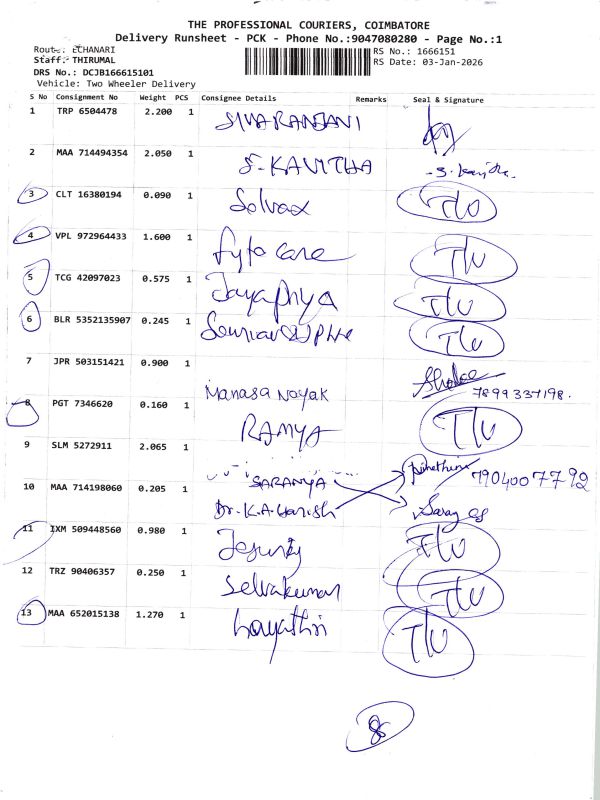 THE PROFESSIONAL COURIERS, COIMBATORE
Delivery Runsheet - PCK - Phone No.:9047080280 - Page No.:1
Route: ECHANARI
RS No.: 1666151
Staff: THIRUMAL
RS Date: 03-Jan-2026
DRS No.: DCJB166615101
Vehicle: Two Wheeler Delivery
S No Consignment No Weight PCS Consignee Details Remarks Seal & Signature
1 TRP 6504478 2.200 1 SIVARANJANI
2 MAA 714494354 2.050 1 S.KAVITHA S.Kavitha.
3 CLT 16380194 0.090 1 Solvax T/U
4 VPL 972964433 1.600 1 Fyto care T/U
5 TCG 42097023 0.575 1 Jayapriya T/U
6 BLR 5352135907 0.245 1 T/U
7 JPR 503151421 0.900 1 Manasa Nayak 7899337198.
8 PGT 7346620 0.160 1 RAMYA T/U
9 SLM 5272911 2.065 1 SARANYA 7904007792
10 MAA 714198060 0.205 1 Dr.K.A.Harish
11 IXM 509448560 0.980 1 T/U
12 TRZ 90406357 0.250 1 Selvakumar T/U
13 MAA 652015138 1.270 1 T/U